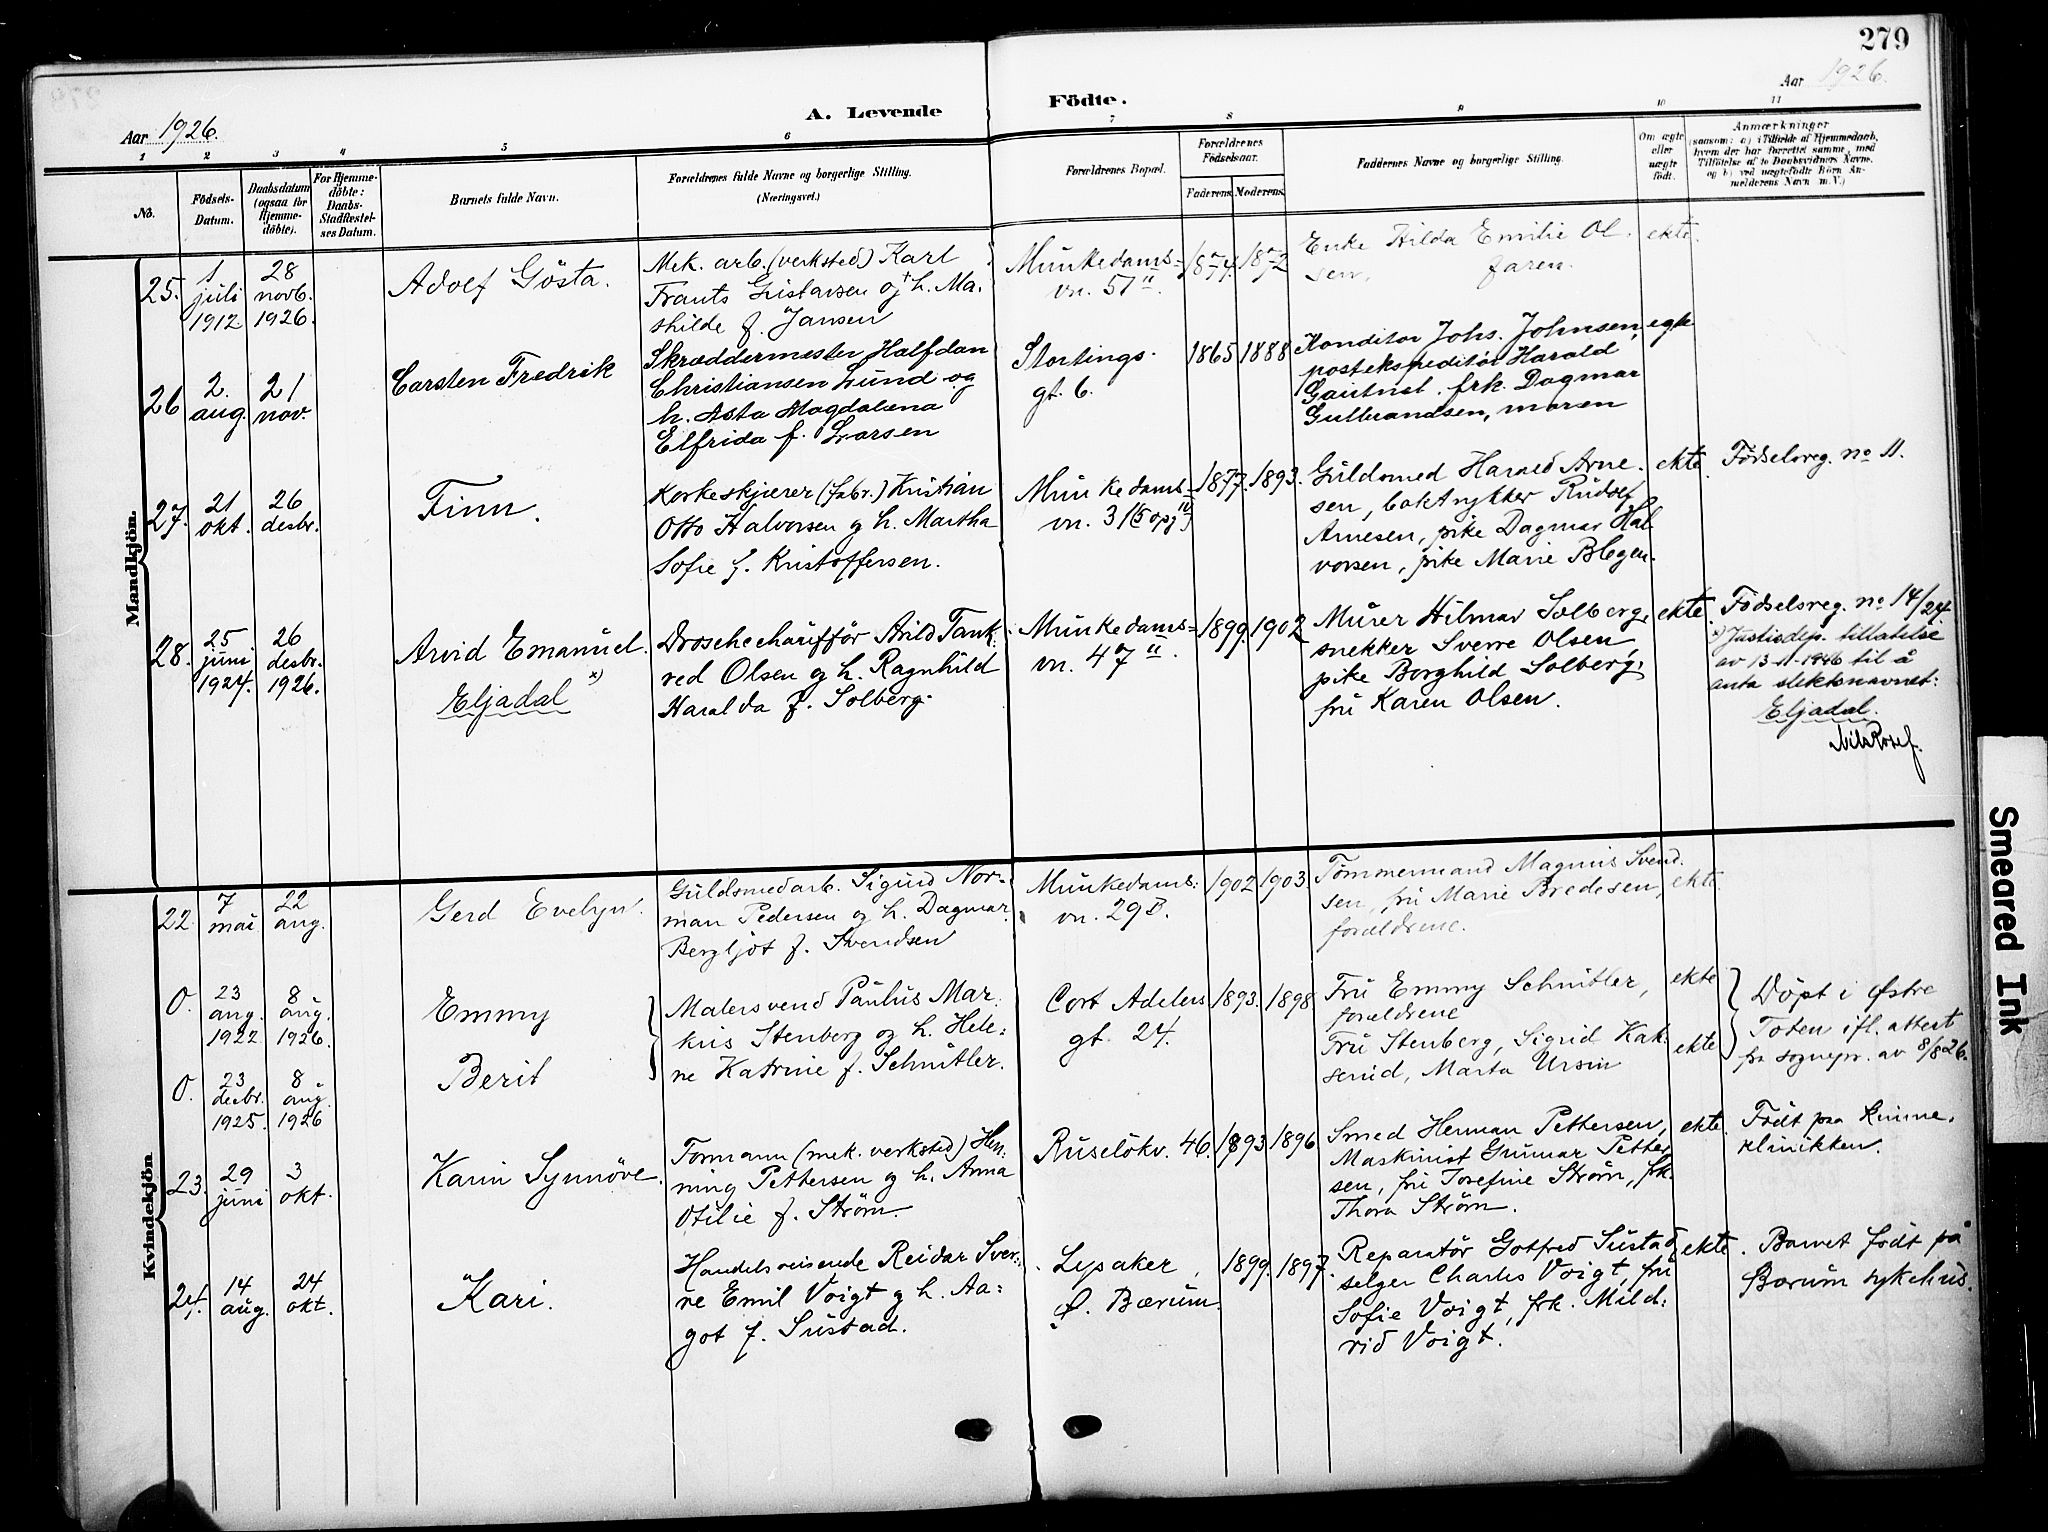 279
Aar 1926.
A. Levende Födte.
Aar 1926.
1 2 3 4 5 6 7 8 9 10 11
No.
Födsels-
Datum.
Daabsdatum
(ogsaa for
Hjemme-
döbte).
For Hjemme-
döbte:
Daabs-
Stadfæstel-
ses Datum.
Barnets fulde Navn.
Forældrenes fulde Navne og borgerlige Stilling.
(Næringsvei.)
Forældrenes Bopæl.
Forældrenes
Födselsaar.
Faderens. Moderens.
Faddernes Navne og borgerlige Stilling.
Om ægte
eller
uægte
födt.
Anmærkninger
(saasom: a) i Tilfælde af Hjemmedaab,
hvem der har forrettet samme, med
Tilföielse af to Daabsvidners Navne,
og b) ved uægtefödte Börn An-
melderens Navn m. V.)
Mandkjön.
25.
1.
juli
1912
28
novb.
1926.
Adolf Gösta.
Mek. arb. (verksted) Karl
Frants Gustavsen og + h. Ma-
thilde f. Jansen
Munkedams-
vn. 51 II.
1874. 1872
Enke Hilda Emilie Ol-
sen, faren.
ekte.
26
2.
aug.
21
nov.
Carsten Fredrik
Skræddermester Halfdan
Christiansen Lund og
h. Asta Magdalena
Elfrida f. Larsen
Stortings-
gt. 6.
1865 1888
Konditor Johs. Johnsen,
postekspeditör Harald
frk. Dagmar
Gulbrandsen, moren
egte
27.
21
okt.
26
desbr.
Finn.
Korkeskjærer (fabr.) Kristian
Otto Halvorsen og h. Martha
Sofie f. Kristoffersen.
Munkedams-
vn. 31 (5 opg IV)
1877. 1893.
Guldsmed Harald Arne-
sen, boktrykker Rudolf
Arnesen, pike Dagmar Hal-
vorsen, pike Marie Blegen.
ekte
Fødselsreg. no 11.
28.
25
juni
1924.
26
desbr.
1926.
Arvid Emanuel.
Eljadal x)
Droschechaufför Arild Tank-
red Olsen og h. Ragnhild
Haralda f. Solberg.
Munkedams-
vn. 47 II.
1899. 1902
Murer Hilmar Solberg,
snekker Sverre Olsen
pike Borghild Solberg,
fru Karen Olsen.
ekte.
Fødselsreg. no 14/24.
x) Justisdep. tillatelse
av 13-11-1946 til å
anta slektsnavnet:
Eljadal.
Kvindekjön
22.
7
mai
22
aug.
Gerd Evelyn.
Guldsmedarb. Sigurd Nor-
man Pedersen og h. Dagmar
Bergljot f. Svendsen
Munkedams-
vn. 29B.
1902 1903.
Tømmermand Magnus Svend-
sen, fru Marie Bredesen,
forældrene.
ekte.
0.
23
aug.
1922
8
aug.
1926.
Emmy
Malersvend Paulus Mar-
kus Stenberg og h. Hele-
ne Katrine f. Schnitler.
Cort Adelers
gt. 24.
1893. 1898
Fru Emmy Schnitler,
forældrene
ekte
Døpt i Østre
Toten ifl. attest
fra sognepr. av 8/8 26.
0.
23
desbr.
1925.
8
aug.
1926
Berit
Fru Stenberg, Sigrid Kak-
serud, Marta Ursin
ekte
23.
29
juni
3
okt.
Karin Synnöve.
Formann (mek. verksted) Hen-
ning Pettersen og h. Anna
Otilie f. Strøm.
Ruselökv. 46.
1893 1896
Smed Herman Pettersen,
Maskinist Gunnar Petter-
sen, fru Josefine Strøm, frk.
Thora Strøm.
ekte.
Födt paa kvinne-
klinikken.
24.
14
aug.
24
okt.
Kari.
Handelsreisende Reidar Sver-
re Emil Voigt og h. Aa-
got f. Sustad.
Lysaker,
Ø. Bærum.
1899. 1897.
Reparatör Gotfred Sustad,
selger Charles Voigt, fru
Sofie Voigt, frk. Mild-
rid Voigt.
ekte.
Barnet födt på
Bærum sykehus.
Smeared Ink